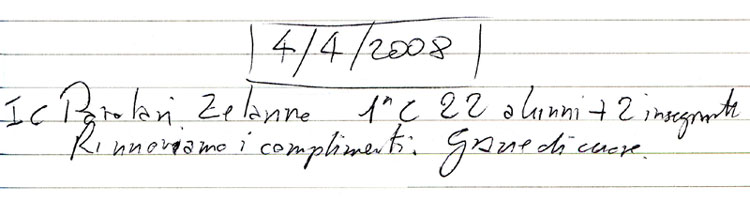 4/4/2008
IC Parolari Zelarino 1ª C 22 alunni + 2 insegnanti
Rinnoviamo i complimenti. Grazie di cuore.